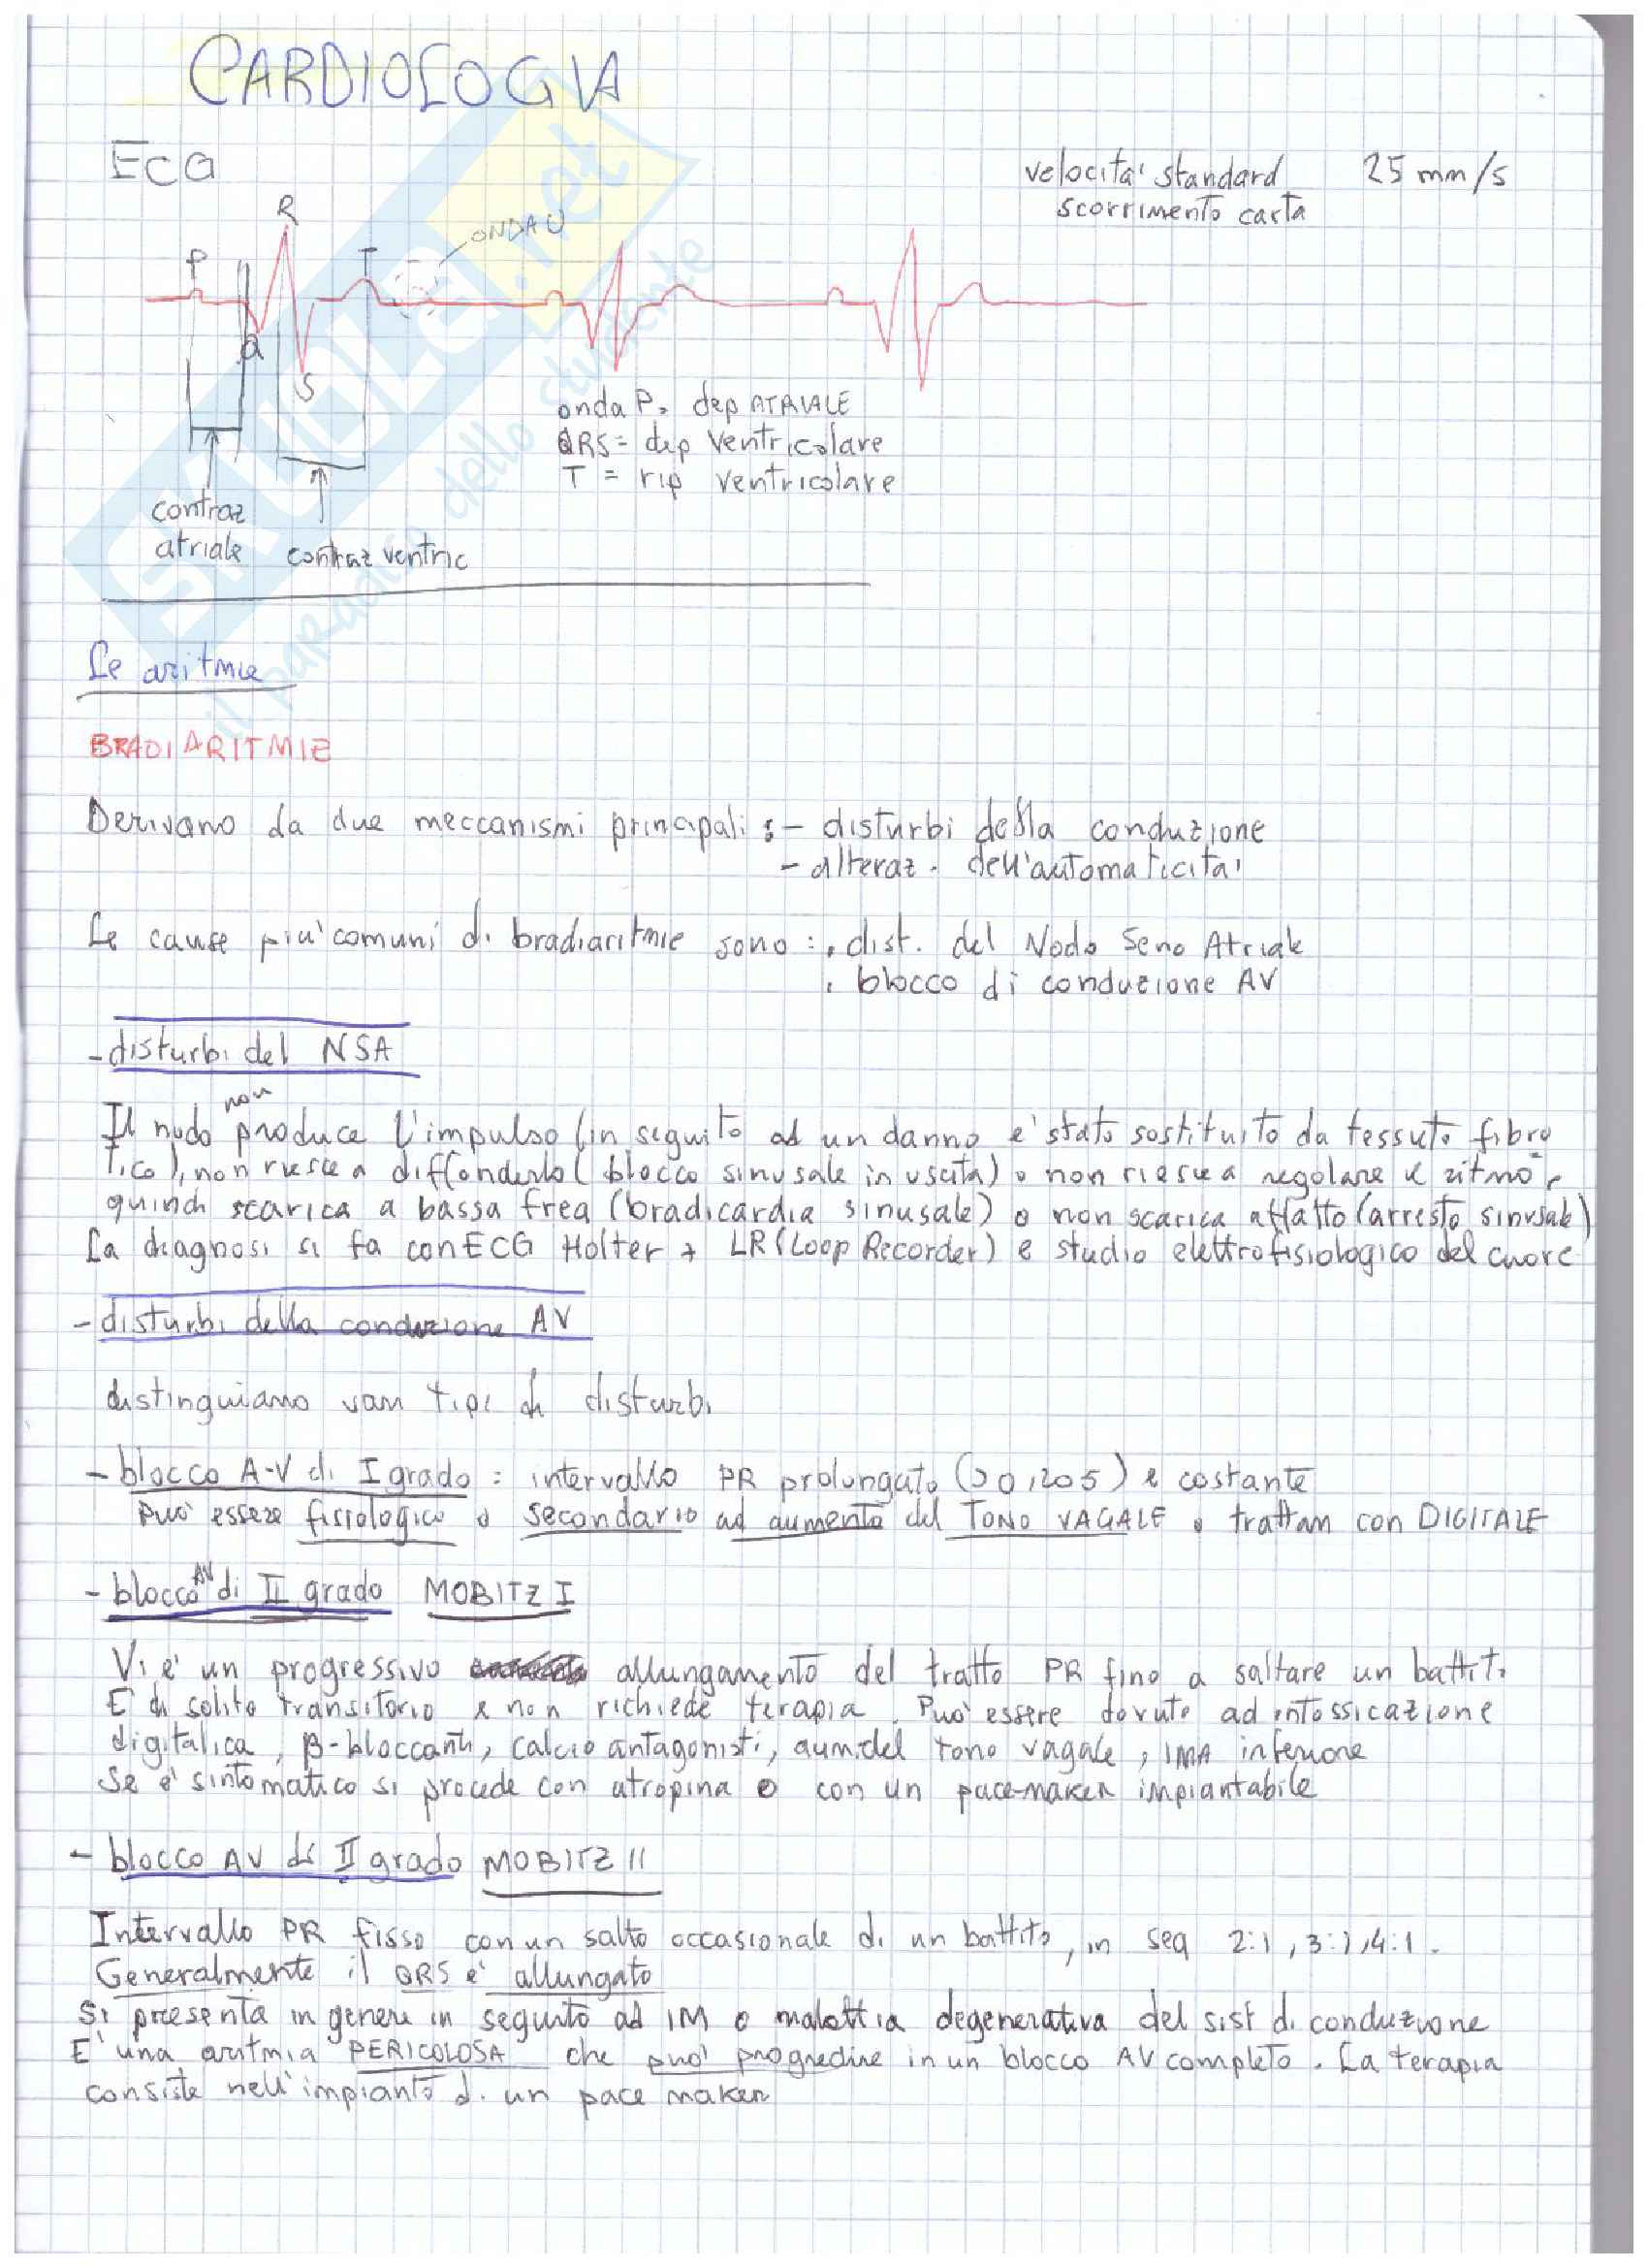 CARDIOLOGIA
ECG
velocita' standard 25 mm/s
scorrimento carta
R
ONDA U
P
T
Q
S
onda P = dep ATRIALE
QRS = dep Ventricolare
T = rip ventricolare
contraz
atriale
contraz ventric
Le aritmie
BRADIARITMIE
Derivano da due meccanismi principali : - disturbi della conduzione
- alteraz. dell'automaticita'
Le cause piu' comuni di bradiaritmie sono : . dist. del Nodo Seno Atriale
. blocco di conduzione AV
- disturbi del NSA
Il nodo non produce l'impulso (in seguito ad un danno e' stato sostituito da tessuto fibro
tico), non riesce a diffonderlo (blocco sinusale in uscita) o non riesce a regolare il ritmo,
quindi scarica a bassa freq (bradicardia sinusale) o non scarica affatto (arresto sinusale)
La diagnosi si fa con ECG Holter + LR (Loop Recorder) e studio elettrofisiologico del cuore
- disturbi della conduzione AV
distinguiamo vari tipi di disturbi
- blocco A-V di I grado : intervallo PR prolungato (>0,20s) e costante
Puo' essere fisiologico o secondario ad aumento del TONO VAGALE o trattam con DIGITALE
- blocco AV di II grado MOBITZ I
Vi e' un progressivo allungamento del tratto PR fino a saltare un battito
E di solito transitorio e non richiede terapia. Puo' essere dovuto ad intossicazione
digitalica, β-bloccanti, calcio antagonisti, aum. del tono vagale, IMA inferiore
Se e' sintomatico si procede con atropina o con un pace-maker impiantabile
- blocco AV di II grado MOBITZ II
Intervallo PR fisso con un salto occasionale di un battito, in seq 2:1, 3:1, 4:1.
Generalmente il QRS e' allungato
Si presenta in genere in seguito ad IM o malattia degenerativa del sist di conduzione
E' una aritmia PERICOLOSA che puo' progredire in un blocco AV completo. La terapia
consiste nell'impianto di un pace maker
SKUOLA.net
il paradiso dello studente